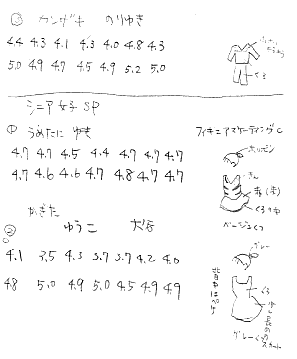 ③ カンザキ のりゆき
4.4 4.3 4.1 4.3 4.0 4.8 4.3
5.0 4.9 4.7 4.5 4.9 5.2 5.0
くろ
シニア女子 SP
① うめたに ゆき
フィギュアスケーティングC
4.7 4.7 4.5 4.4 4.7 4.7 4.7
4.7 4.6 4.6 4.7 4.8 4.7 4.7
きん
ベージュくつ
② かぎた ゆうこ
4.1 3.5 4.3 3.7 3.7 4.2 4.0
グレー
4.8 5.0 4.9 5.0 4.5 4.9 4.9
くろ
背中は
少し長めの
スカート
グレーぐつ